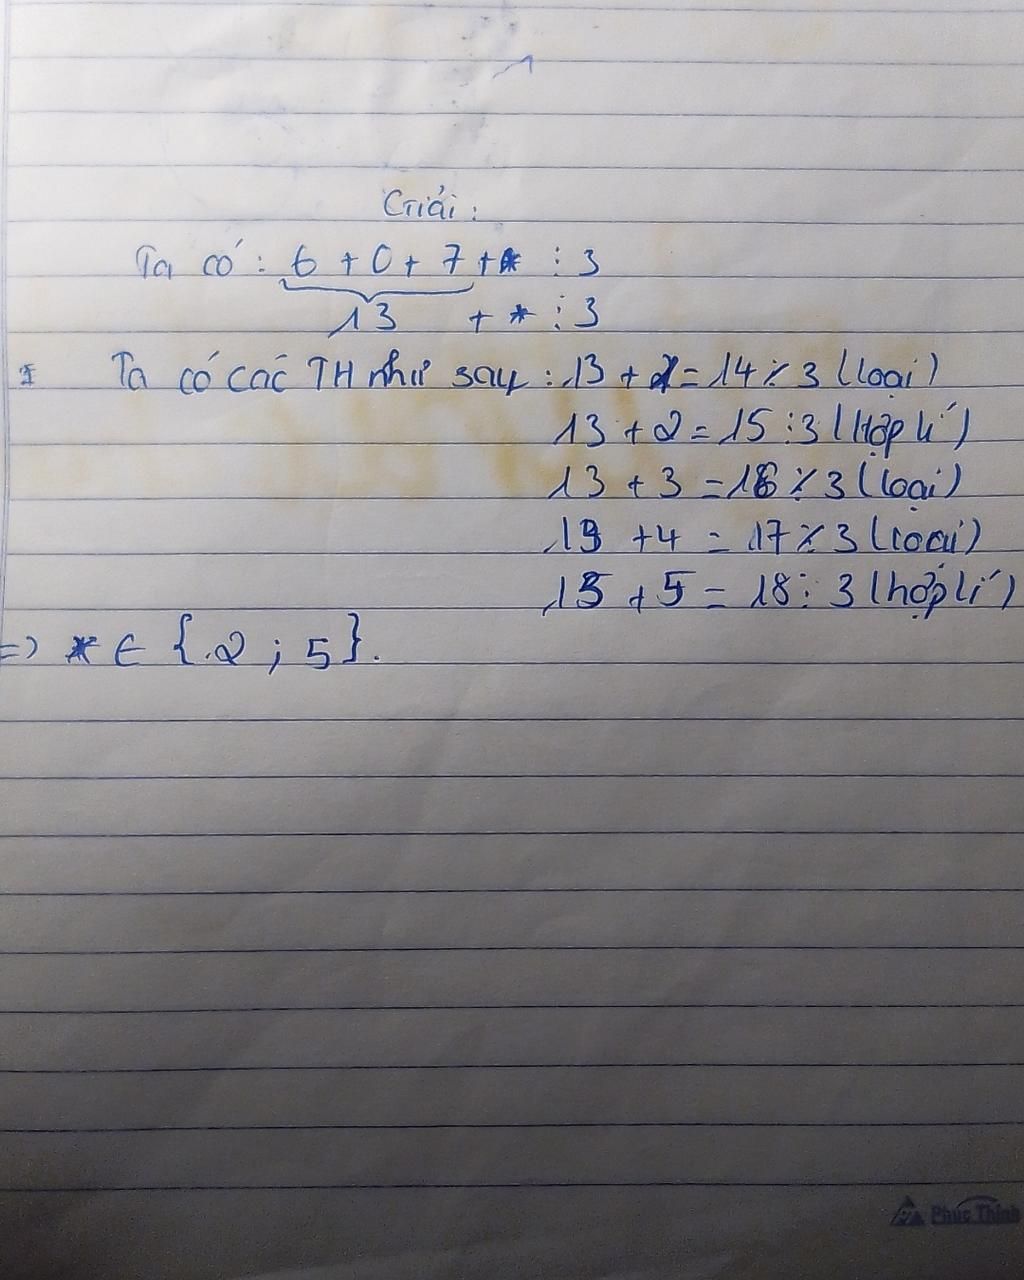 Giải:
Ta có: 6 + 0 + 7 + * ⋮ 3
13 + * ⋮ 3
Ta có các TH như sau: 13 + 1 = 14 ⋮̸ 3 (loại)
13 + 2 = 15 ⋮ 3 (Hợp lí)
13 + 3 = 16 ⋮̸ 3 (loại)
13 + 4 = 17 ⋮̸ 3 (loại)
13 + 5 = 18 ⋮ 3 (hợp lí)
=> * ∈ {2 ; 5}.
Phúc Thịnh